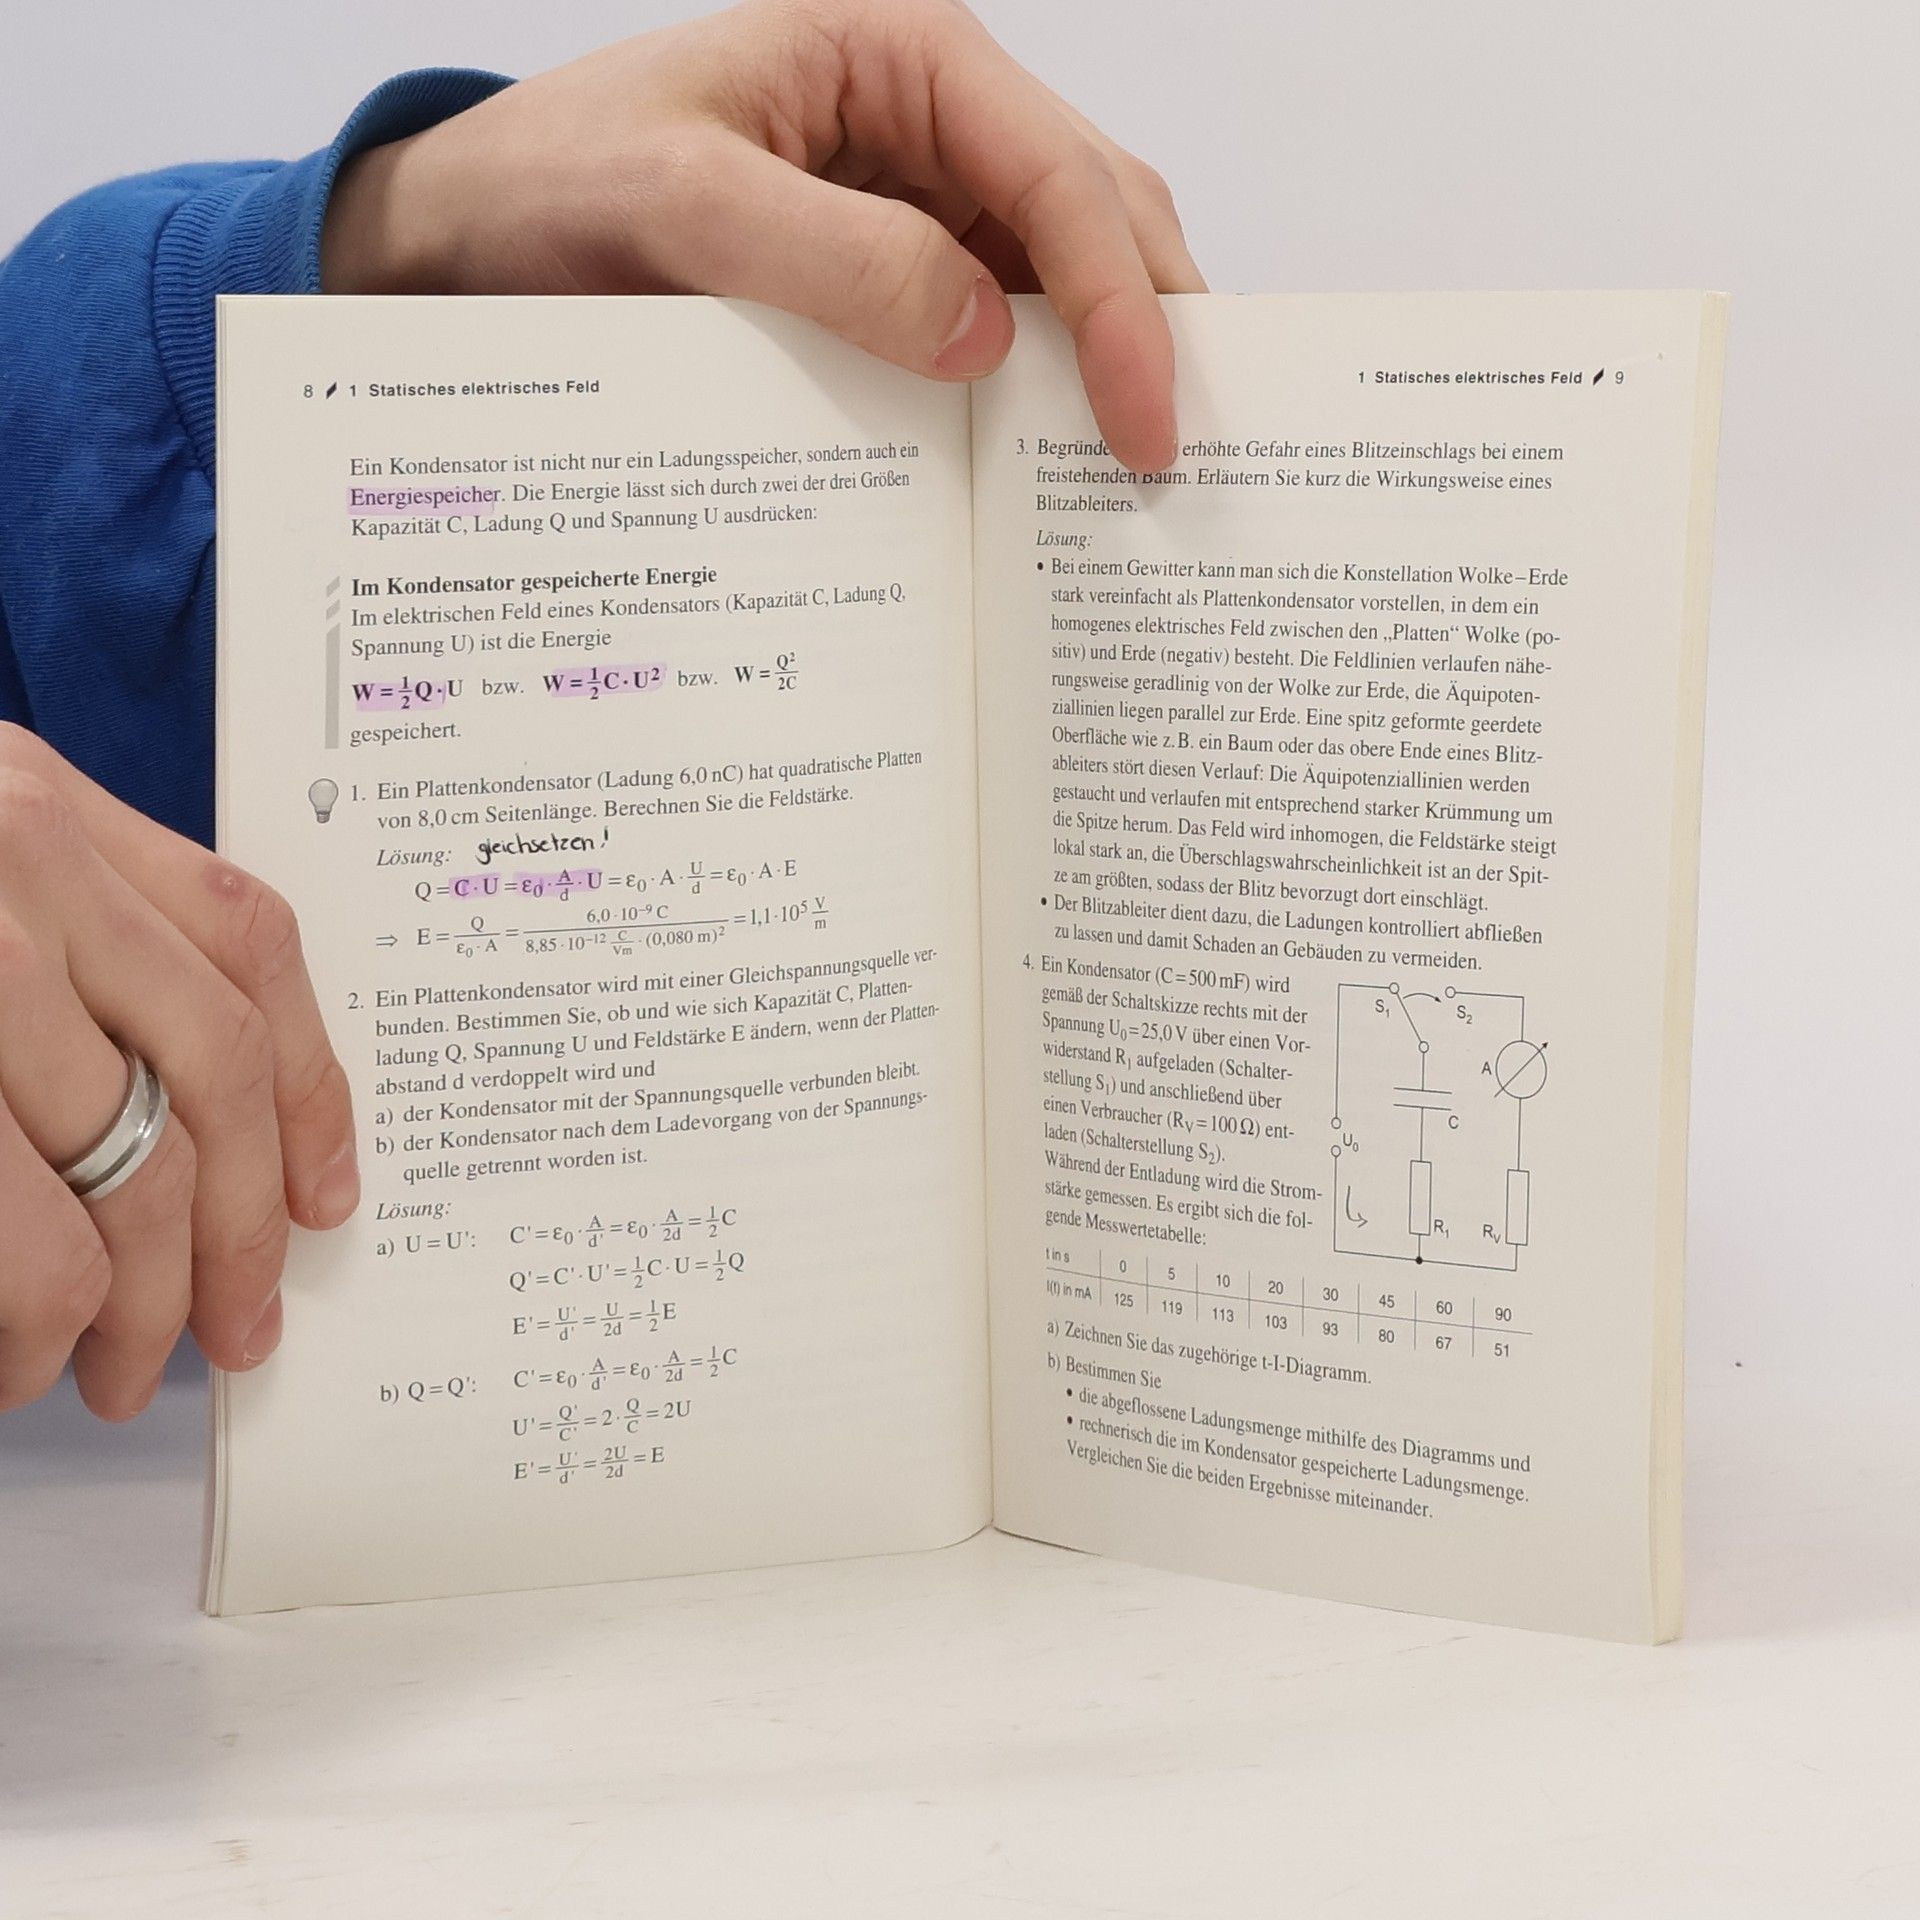 8 1 Statisches elektrisches Feld
Ein Kondensator ist nicht nur ein Ladungsspeicher, sondern auch ein
Energiespeicher. Die Energie lässt sich durch zwei der drei Größen
Kapazität C, Ladung Q und Spannung U ausdrücken:
Im Kondensator gespeicherte Energie
Im elektrischen Feld eines Kondensators (Kapazität C, Ladung Q,
Spannung U) ist die Energie
W = 1/2 Q · U bzw. W = 1/2 C · U² bzw. W = Q²/2C
gespeichert.
1. Ein Plattenkondensator (Ladung 6,0 nC) hat quadratische Platten
von 8,0 cm Seitenlänge. Berechnen Sie die Feldstärke.
Lösung: gleichsetzen!
Q = C · U = ε₀ · A/d · U = ε₀ · A · U/d = ε₀ · A · E
⇒ E = Q/(ε₀ · A) = 6,0 · 10⁻⁹ C/(8,85 · 10⁻¹² C/Vm · (0,080 m)²) = 1,1 · 10⁵ V/m
2. Ein Plattenkondensator wird mit einer Gleichspannungsquelle ver-
bunden. Bestimmen Sie, ob und wie sich Kapazität C, Platten-
ladung Q, Spannung U und Feldstärke E ändern, wenn der Platten-
abstand d verdoppelt wird und
a) der Kondensator mit der Spannungsquelle verbunden bleibt.
b) der Kondensator nach dem Ladevorgang von der Spannungs-
quelle getrennt worden ist.
Lösung:
a) U = U': C' = ε₀ · A/d' = ε₀ · A/2d = 1/2 C
Q' = C' · U' = 1/2 C · U = 1/2 Q
E' = U'/d' = U/2d = 1/2 E
b) Q = Q': C' = ε₀ · A/d' = ε₀ · A/2d = 1/2 C
U' = Q'/C' = 2 · Q/C = 2U
E' = U'/d' = 2U/2d = E
1 Statisches elektrisches Feld 9
3. Begründe erhöhte Gefahr eines Blitzeinschlags bei einem
freistehenden Baum. Erläutern Sie kurz die Wirkungsweise eines
Blitzableiters.
Lösung:
• Bei einem Gewitter kann man sich die Konstellation Wolke–Erde
stark vereinfacht als Plattenkondensator vorstellen, in dem ein
homogenes elektrisches Feld zwischen den „Platten“ Wolke (po-
sitiv) und Erde (negativ) besteht. Die Feldlinien verlaufen nähe-
rungsweise geradlinig von der Wolke zur Erde, die Äquipoten-
ziallinien liegen parallel zur Erde. Eine spitz geformte geerdete
Oberfläche wie z. B. ein Baum oder das obere Ende eines Blitz-
ableiters stört diesen Verlauf: Die Äquipotenziallinien werden
gestaucht und verlaufen mit entsprechend starker Krümmung um
die Spitze herum. Das Feld wird inhomogen, die Feldstärke steigt
lokal stark an, die Überschlagswahrscheinlichkeit ist an der Spit-
ze am größten, sodass der Blitz bevorzugt dort einschlägt.
• Der Blitzableiter dient dazu, die Ladungen kontrolliert abfließen
zu lassen und damit Schaden an Gebäuden zu vermeiden.
4. Ein Kondensator (C = 500 mF) wird
gemäß der Schaltskizze rechts mit der
Spannung U₀ = 25,0 V über einen Vor-
widerstand R₁ aufgeladen (Schalter-
stellung S₁) und anschließend über
einen Verbraucher (Rᵥ = 100 Ω) ent-
laden (Schalterstellung S₂).
Während der Entladung wird die Strom-
stärke gemessen. Es ergibt sich die fol-
gende Messwertetabelle:
S₁ S₂
A
C
U₀
R₁ Rᵥ
t in s 0 5 10 20 30 45 60 90
I(t) in mA 125 119 113 103 93 80 67 51
a) Zeichnen Sie das zugehörige t-I-Diagramm.
b) Bestimmen Sie
• die abgeflossene Ladungsmenge mithilfe des Diagramms und
• rechnerisch die im Kondensator gespeicherte Ladungsmenge.
Vergleichen Sie die beiden Ergebnisse miteinander.